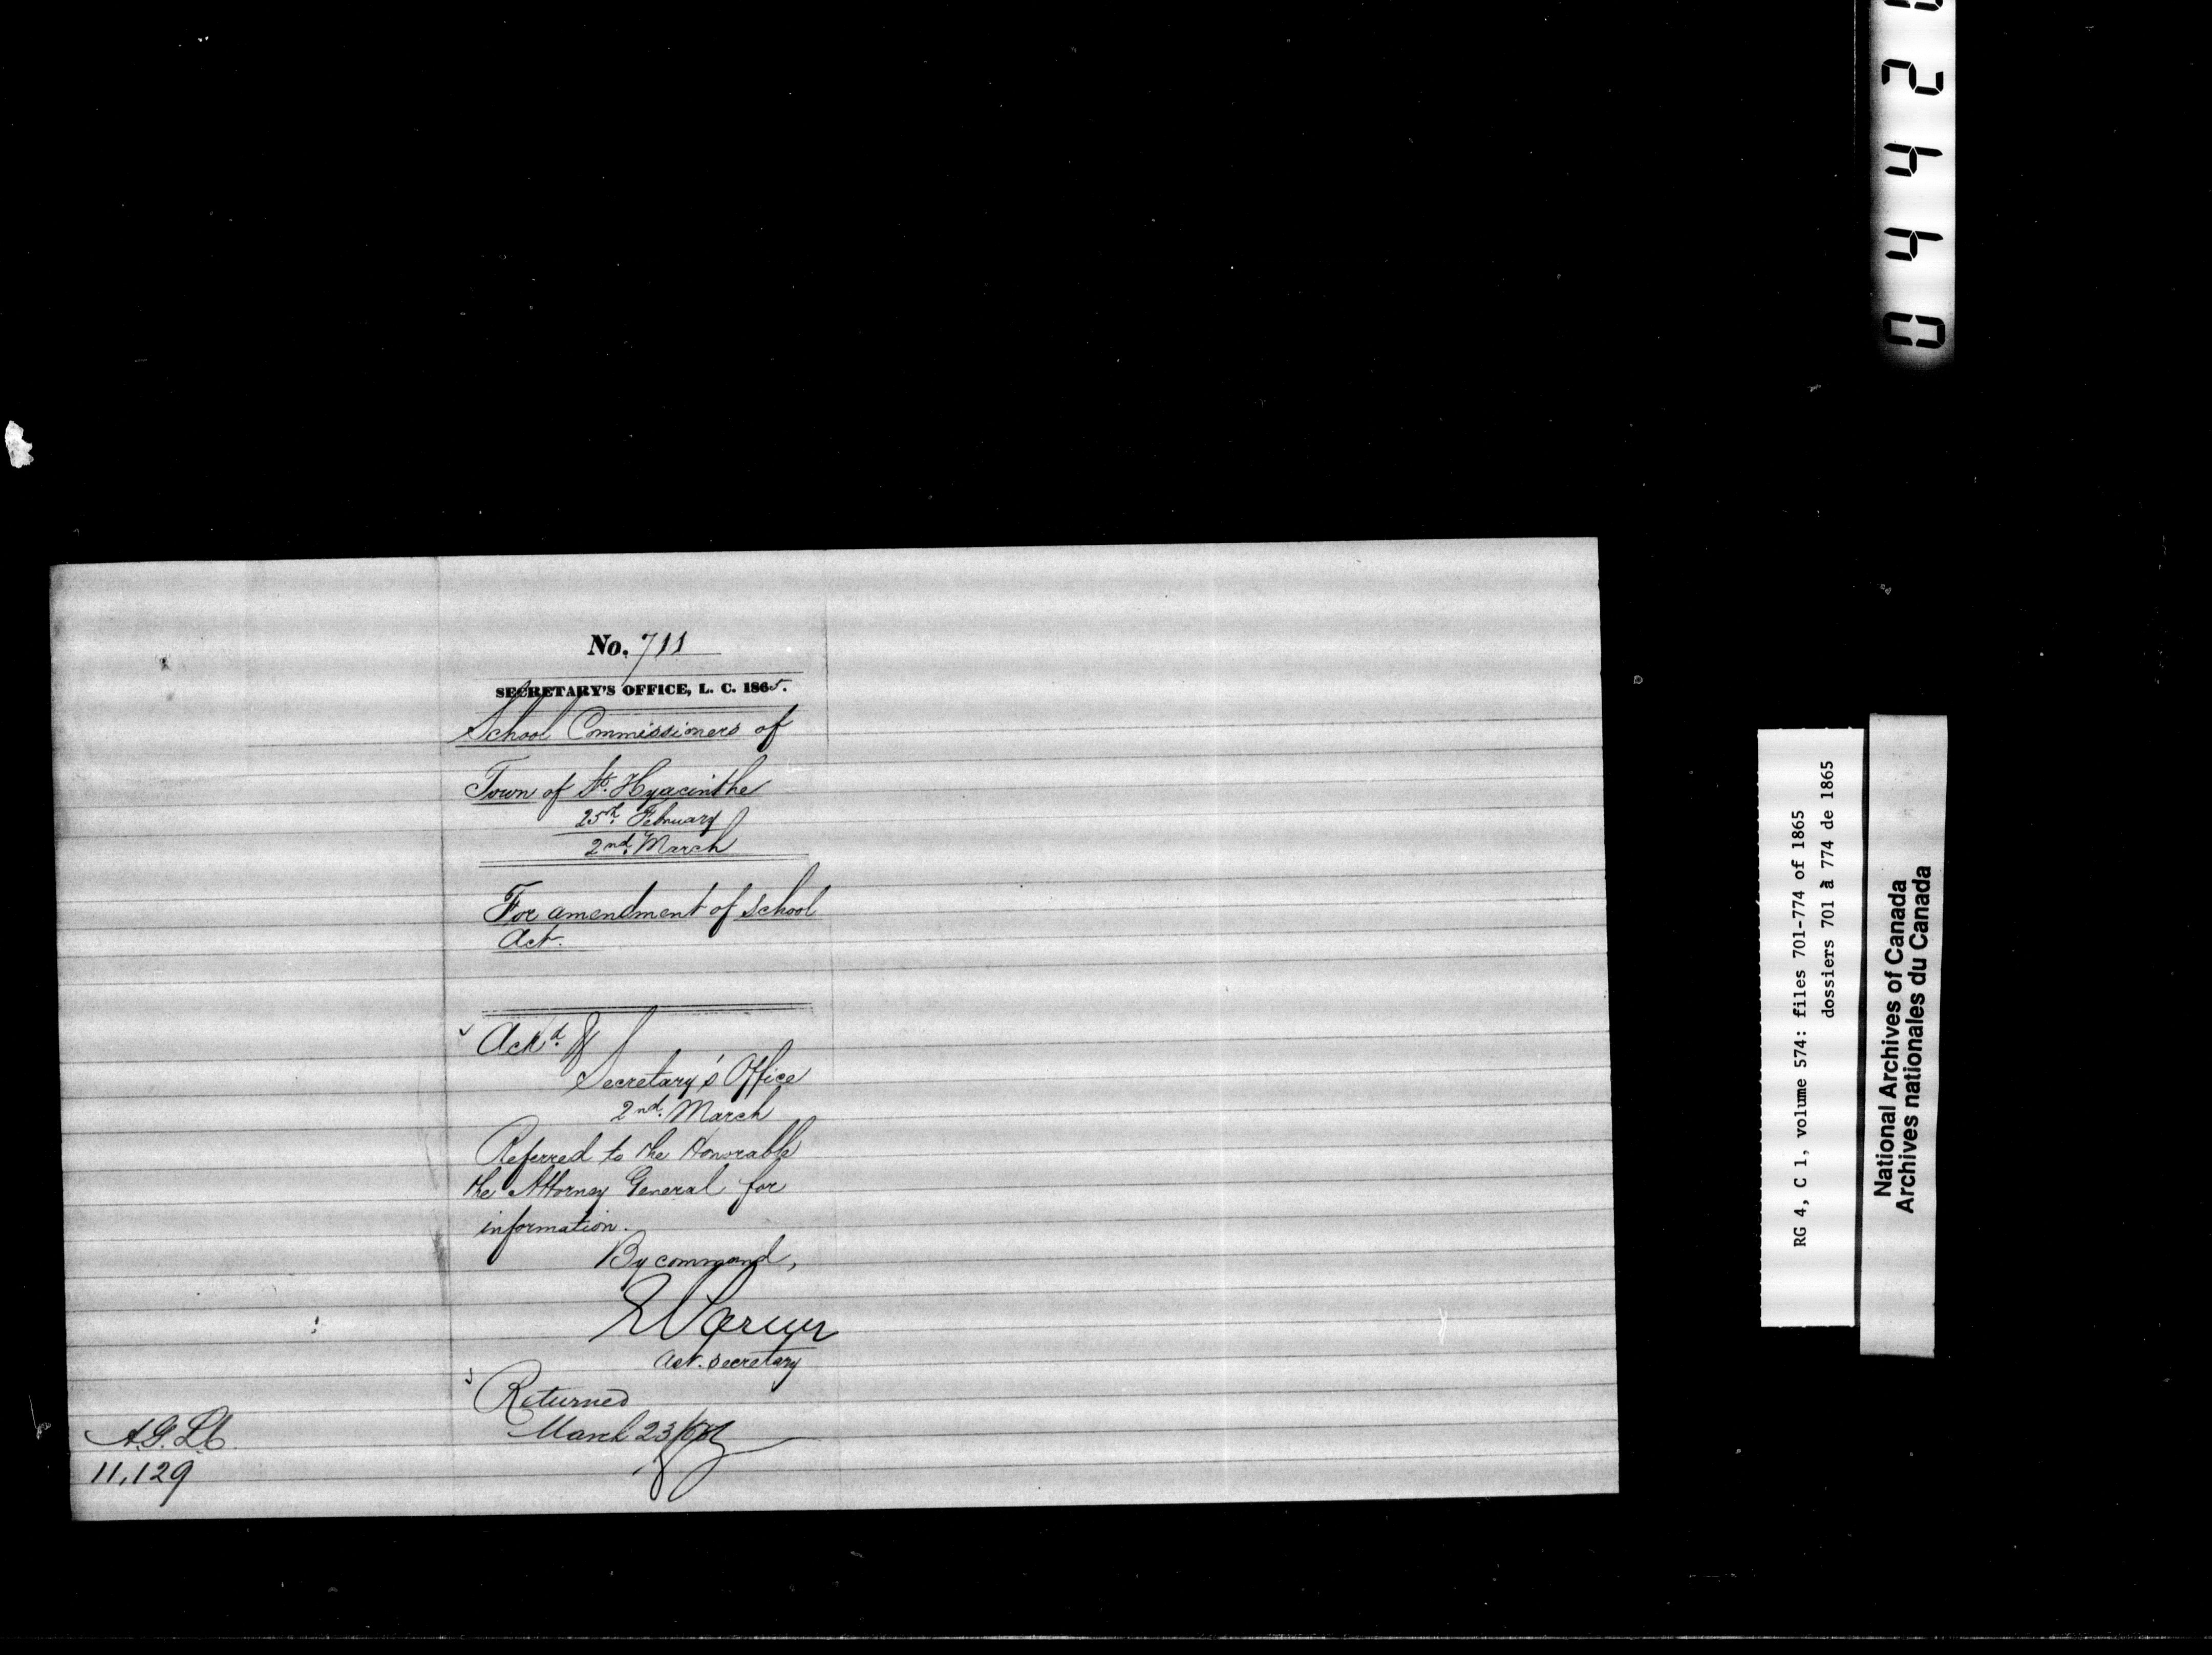 No. 711
SECRETARY'S OFFICE, L. C. 1865.
School Commissioners of
Town of St. Hyacinthe
25th. February
2nd. March
For amendment of School
Act.
Ackd.
Secretary's Office
2nd. March
Referred to the Honorable
the Attorney General for
information.
By command,
Ast. Secretary
Returned
March 23/
A.G.L.C.
11,129
RG 4, C 1, volume 574: files 701-774 of 1865
dossiers 701 à 774 de 1865
National Archives of Canada
Archives nationales du Canada
0 4 4 2